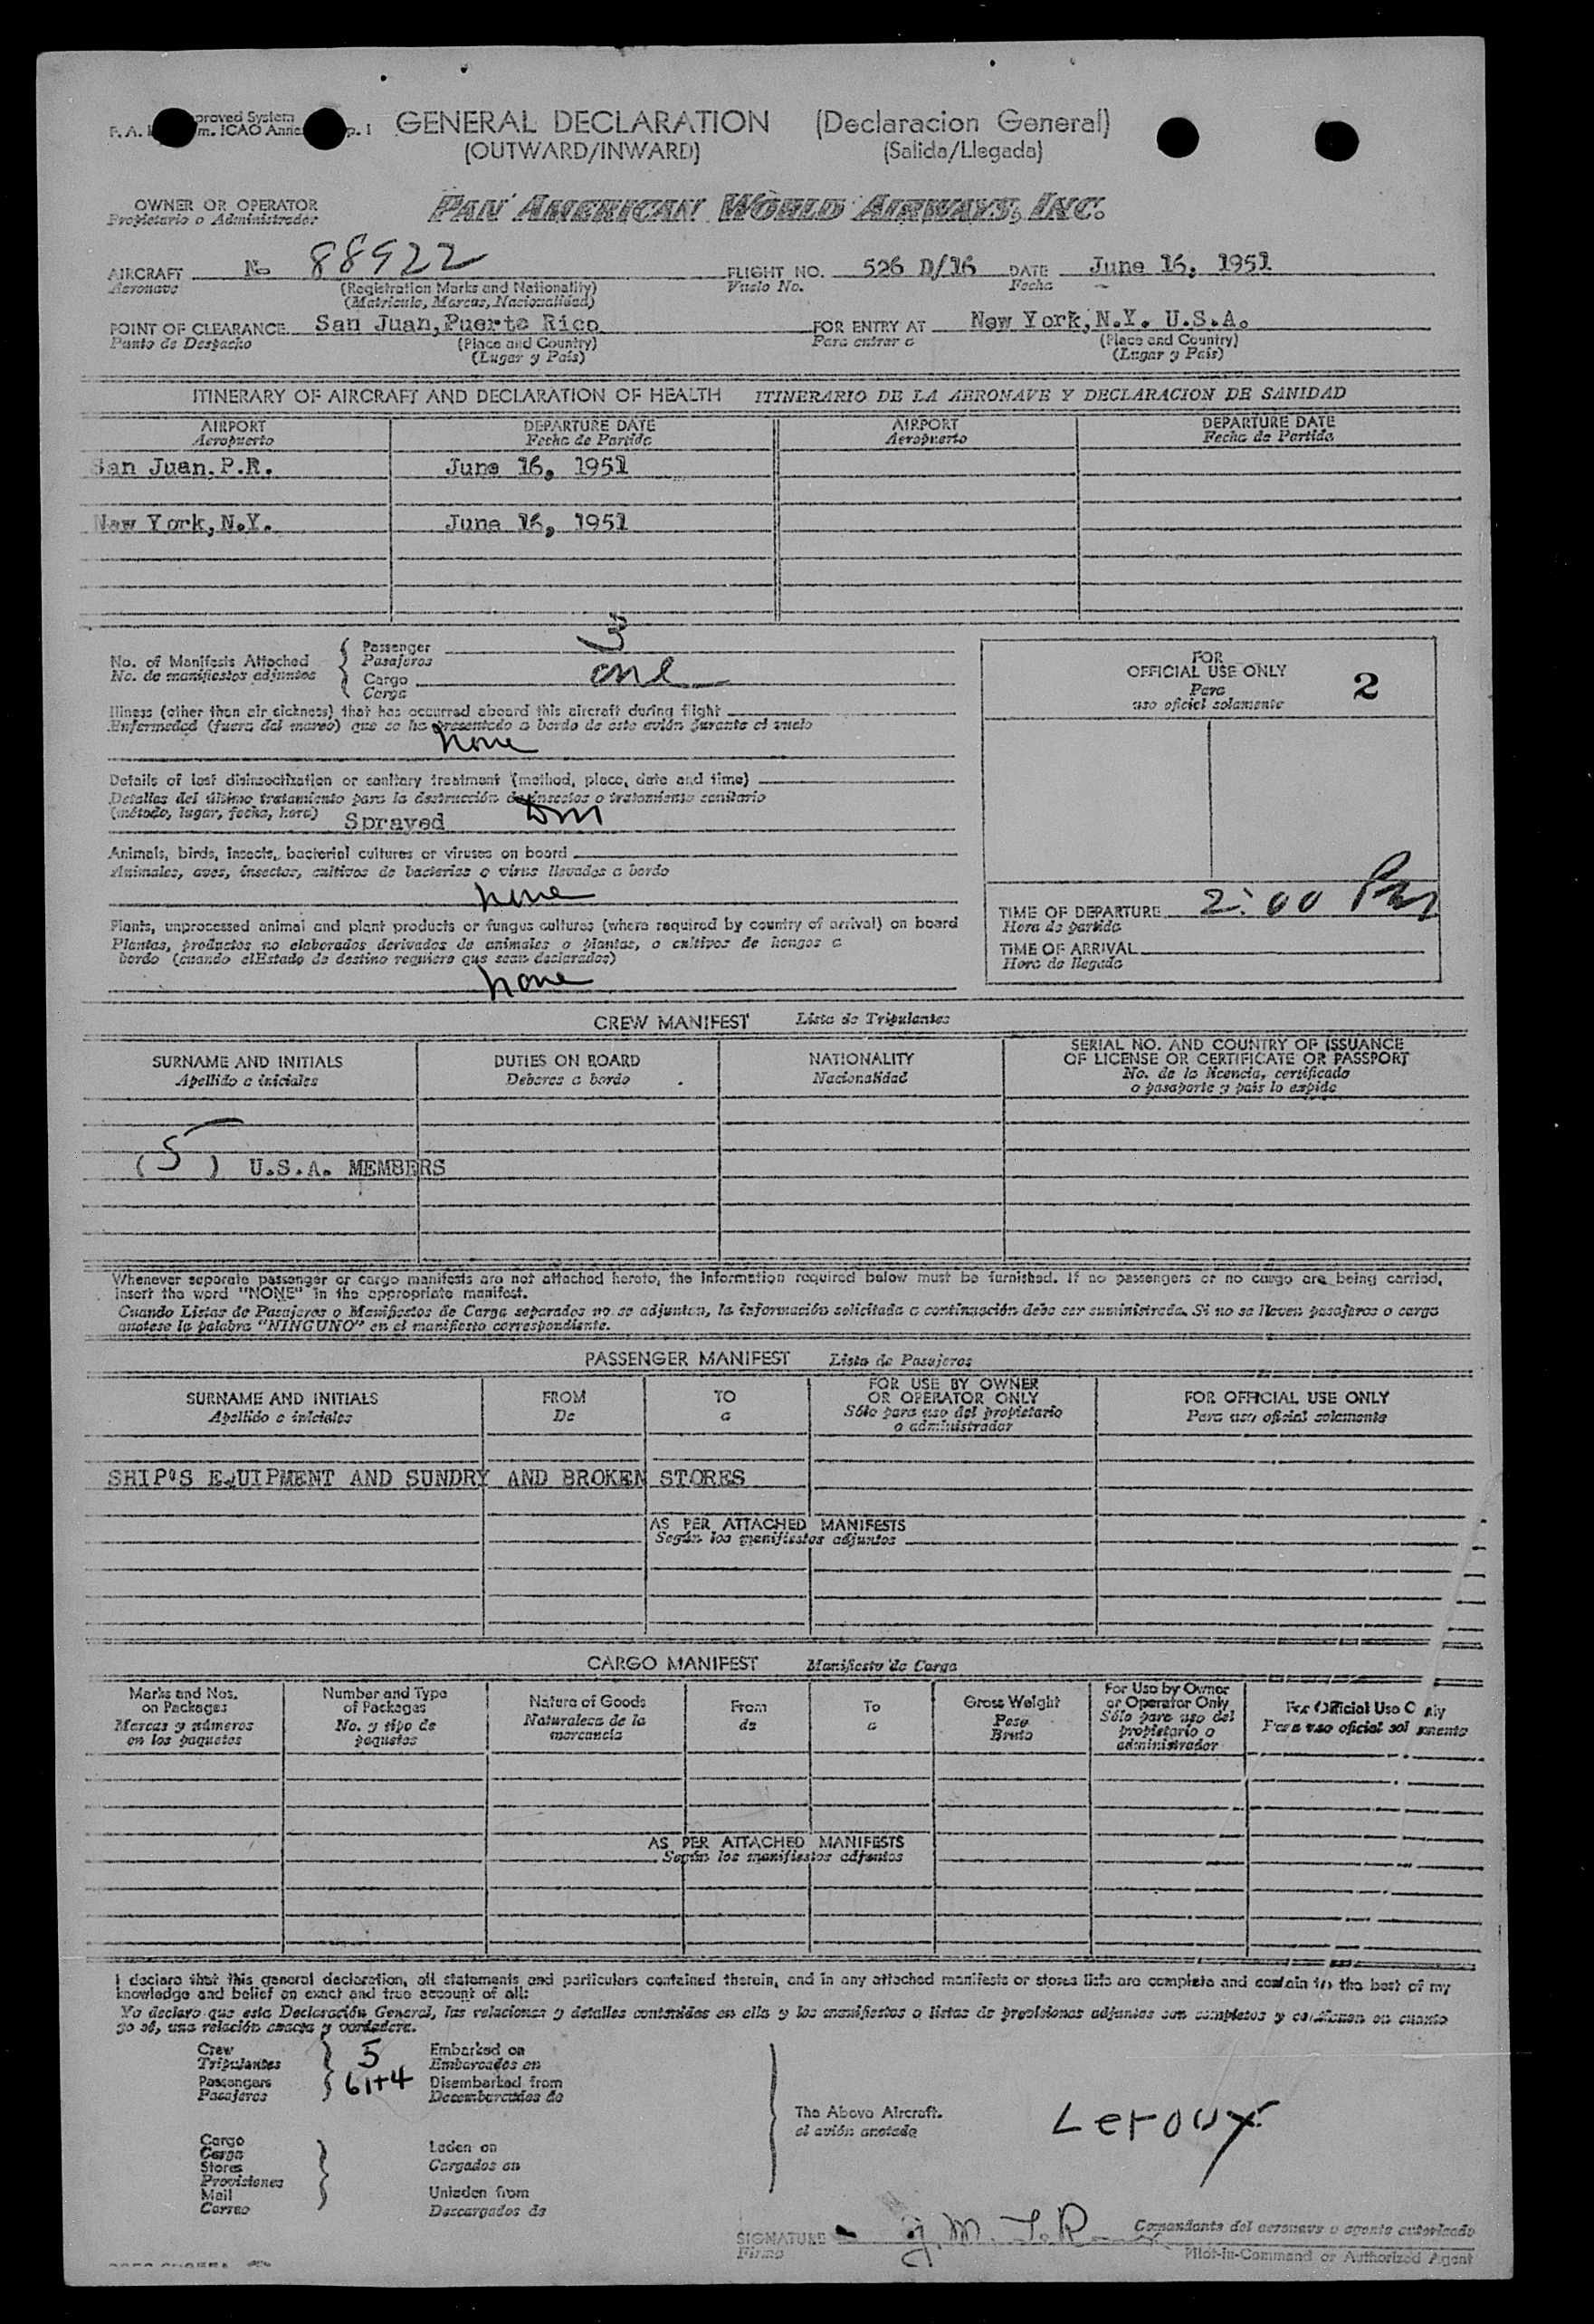 proved System
F. A. m. ICAO Annex p. 1
GENERAL DECLARATION (Declaracion General)
(OUTWARD/INWARD) (Salida/Llegada)
OWNER OR OPERATOR
Propietario o Administrador
PAN AMERICAN WORLD AIRWAYS, INC.
AIRCRAFT N- 88922 FLIGHT NO. 526 D/16 DATE June 16, 1951
Aeronave (Registration Marks and Nationality) Vuelo No. Fecha
(Matricula, Marcas, Nacionalidad)
POINT OF CLEARANCE San Juan, Puerto Rico FOR ENTRY AT New York, N.Y. U.S.A.
Punto de Despacho (Place and Country) Para entrar a (Place and Country)
(Lugar y País) (Lugar y País)
ITINERARY OF AIRCRAFT AND DECLARATION OF HEALTH ITINERARIO DE LA AERONAVE Y DECLARACION DE SANIDAD
AIRPORT DEPARTURE DATE AIRPORT DEPARTURE DATE
Aeropuerto Fecha de Partida Aeropuerto Fecha de Partida
San Juan, P.R. June 16, 1951
New York, N.Y. June 16, 1951
No. of Manifests Attached
No. de manifiestos adjuntos
Passenger 3
Pasajeros
Cargo one
Carga
Illness (other than air sickness) that has occurred aboard this aircraft during flight
Enfermedad (fuera del mareo) que se ha presentado a bordo de este avión durante el vuelo
none
Details of last disinsectization or sanitary treatment (method, place, date and time)
Detalles del último tratamiento para la destrucción de insectos o tratamiento sanitario
(método, lugar, fecha, hora) Sprayed
Animals, birds, insects, bacterial cultures or viruses on board
Animales, aves, insectos, cultivos de bacterias o virus llevados a bordo
none
Plants, unprocessed animal and plant products or fungus cultures (where required by country of arrival) on board
Plantas, productos no elaborados derivados de animales o plantas, o cultivos de hongos a
bordo (cuando el Estado de destino requiere que sean declarados)
none
FOR
OFFICIAL USE ONLY 2
Para
uso oficial solamente
TIME OF DEPARTURE 2:00 PM
Hora de partida
TIME OF ARRIVAL
Hora de llegada
CREW MANIFEST Lista de Tripulantes
SURNAME AND INITIALS DUTIES ON BOARD NATIONALITY SERIAL NO. AND COUNTRY OF ISSUANCE
OF LICENSE OR CERTIFICATE OR PASSPORT
Apellido e iniciales Deberes a bordo Nacionalidad No. de la licencia, certificado
o pasaporte y pais lo expide
(5) U.S.A. MEMBERS
Whenever separate passenger or cargo manifests are not attached hereto, the information required below must be furnished. If no passengers or no cargo are being carried,
insert the word "NONE" in the appropriate manifest.
Cuando Listas de Pasajeros o Manifiestos de Carga separados no se adjunten, la información solicitada a continuación debe ser suministrada. Si no se lleven pasajeros o carga
anotese la palabra "NINGUNO" en el manifiesto correspondiente.
PASSENGER MANIFEST Lista de Pasajeros
SURNAME AND INITIALS FROM TO FOR USE BY OWNER
OR OPERATOR ONLY FOR OFFICIAL USE ONLY
Apellido e iniciales De a Sólo para uso del propietario
o administrador Para uso oficial solamente
SHIP'S EQUIPMENT AND SUNDRY AND BROKEN STORES
AS PER ATTACHED MANIFESTS
Según los manifiestos adjuntos
CARGO MANIFEST Manifiesto de Carga
Marks and Nos.
on Packages
Marcas y números
en los paquetes
Number and Type
of Packages
No. y tipo de
paquetes
Nature of Goods
Naturaleza de la
mercancía
From
de
To
a
Gross Weight
Peso
Bruto
For Use by Owner
or Operator Only
Sólo para uso del
propietario o
administrador
For Official Use Only
Para uso oficial solamente
AS PER ATTACHED MANIFESTS
Según los manifiestos adjuntos
I declare that this general declaration, all statements and particulars contained therein, and in any attached manifests or stores lists are complete and contain to the best of my
knowledge and belief an exact and true account of all:
Yo declaro que esta Declaración General, las relaciones y detalles contenidos en ella y los manifiestos o listas de provisiones adjuntos son completos y contienen en cuanto
yo sé, una relación exacta y verdadera.
Crew 5 Embarked on
Tripulantes Embarcados en
Passengers 61+4 Disembarked from
Pasajeros Desembarcados de
Cargo
Carga
Stores
Provisiones
Mail
Correo
Laden on
Cargados en
Unladen from
Descargados de
The Above Aircraft.
el avión anotado
Leroux
SIGNATURE
Firma
Comandante del aeronave o agente autorizado
Pilot-in-Command or Authorized Agent